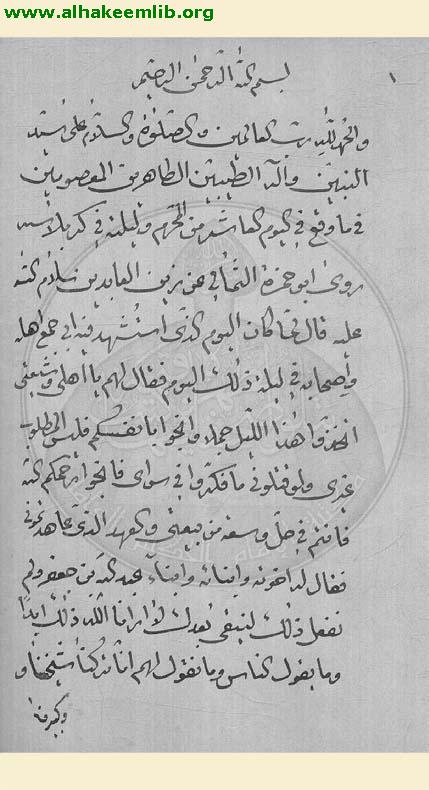 www.alhakeemlib.org
١
بسم الله الرحمن الرحيم
والحمد لله رب العالمين والصلوة والسلام على سيد
النبيين وآله الطيبين الطاهرين المعصومين
في ما وقع في اليوم العاشر من المحرم وليلته في كربلا
روى ابو حمزة الثمالي عن زين العابدين سلام الله
عليه قال لما كان اليوم الذي استشهد فيه ابي جمع اهله
واصحابه في ليلة ذلك اليوم فقال لهم يا اهلي وشيعتي
اتخذوا هذا الليل جملا وانجوا بانفسكم فليس المطلوب
غيري ولو قتلوني ما فكروا في سواى فانجوا رحمكم الله
فانتم في حل وسعة من بيعتي والعهد الذي عاهدتموني
فقال له اخوته وابنائه وابناء عبد الله بن جعفر ولم
نفعل ذلك لنبقى بعدك لا ارانا الله ذلك ابدا
وما يقول الناس وما نقول لهم انا تركنا شيخنا و
وكبيرنا